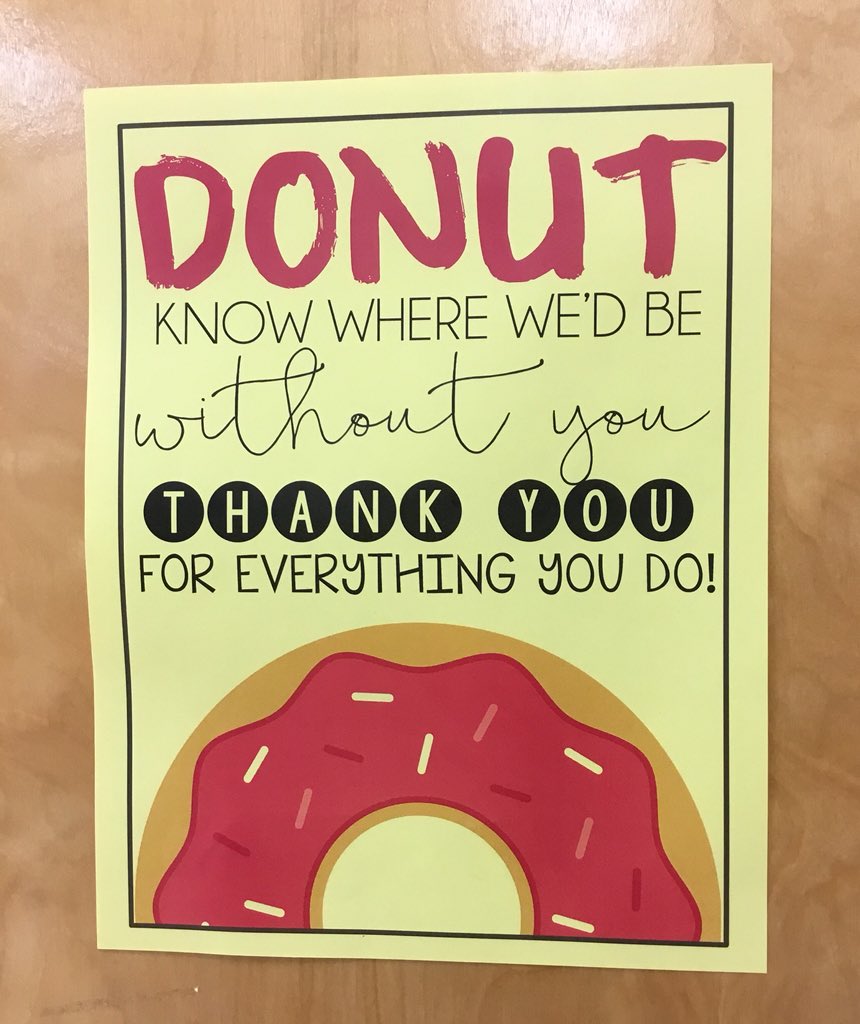 DONUT
KNOW WHERE WE'D BE
without you
THANK YOU
FOR EVERYTHING YOU DO!